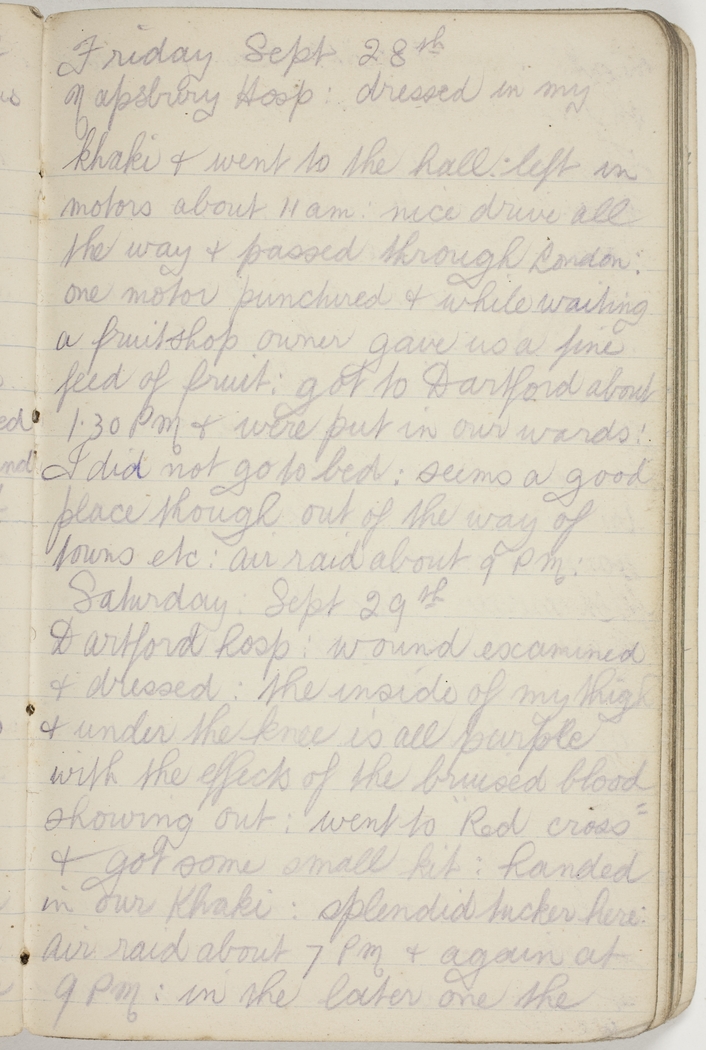 Friday Sept 28th
Napsbury Hosp: dressed in my
khaki & went to the hall: left in
motors about 11 am: nice drive all
the way & passed through London:
one motor punctured & while waiting
a fruitshop owner gave us a fine
feed of fruit: got to Dartford about
1.30 PM & were put in our wards:
I did not go to bed: seems a good
place though out of the way of
towns etc: air raid about 9 PM:
Saturday: Sept 29th
Dartford hosp: wound examined
& dressed: the inside of my thigh
& under the knee is all purple
with the effects of the bruised blood
showing out: went to "Red cross"
& got some small kit: handed
in our Khaki: splendid tucker here:
air raid about 7 PM & again at
9 PM: in the later one the